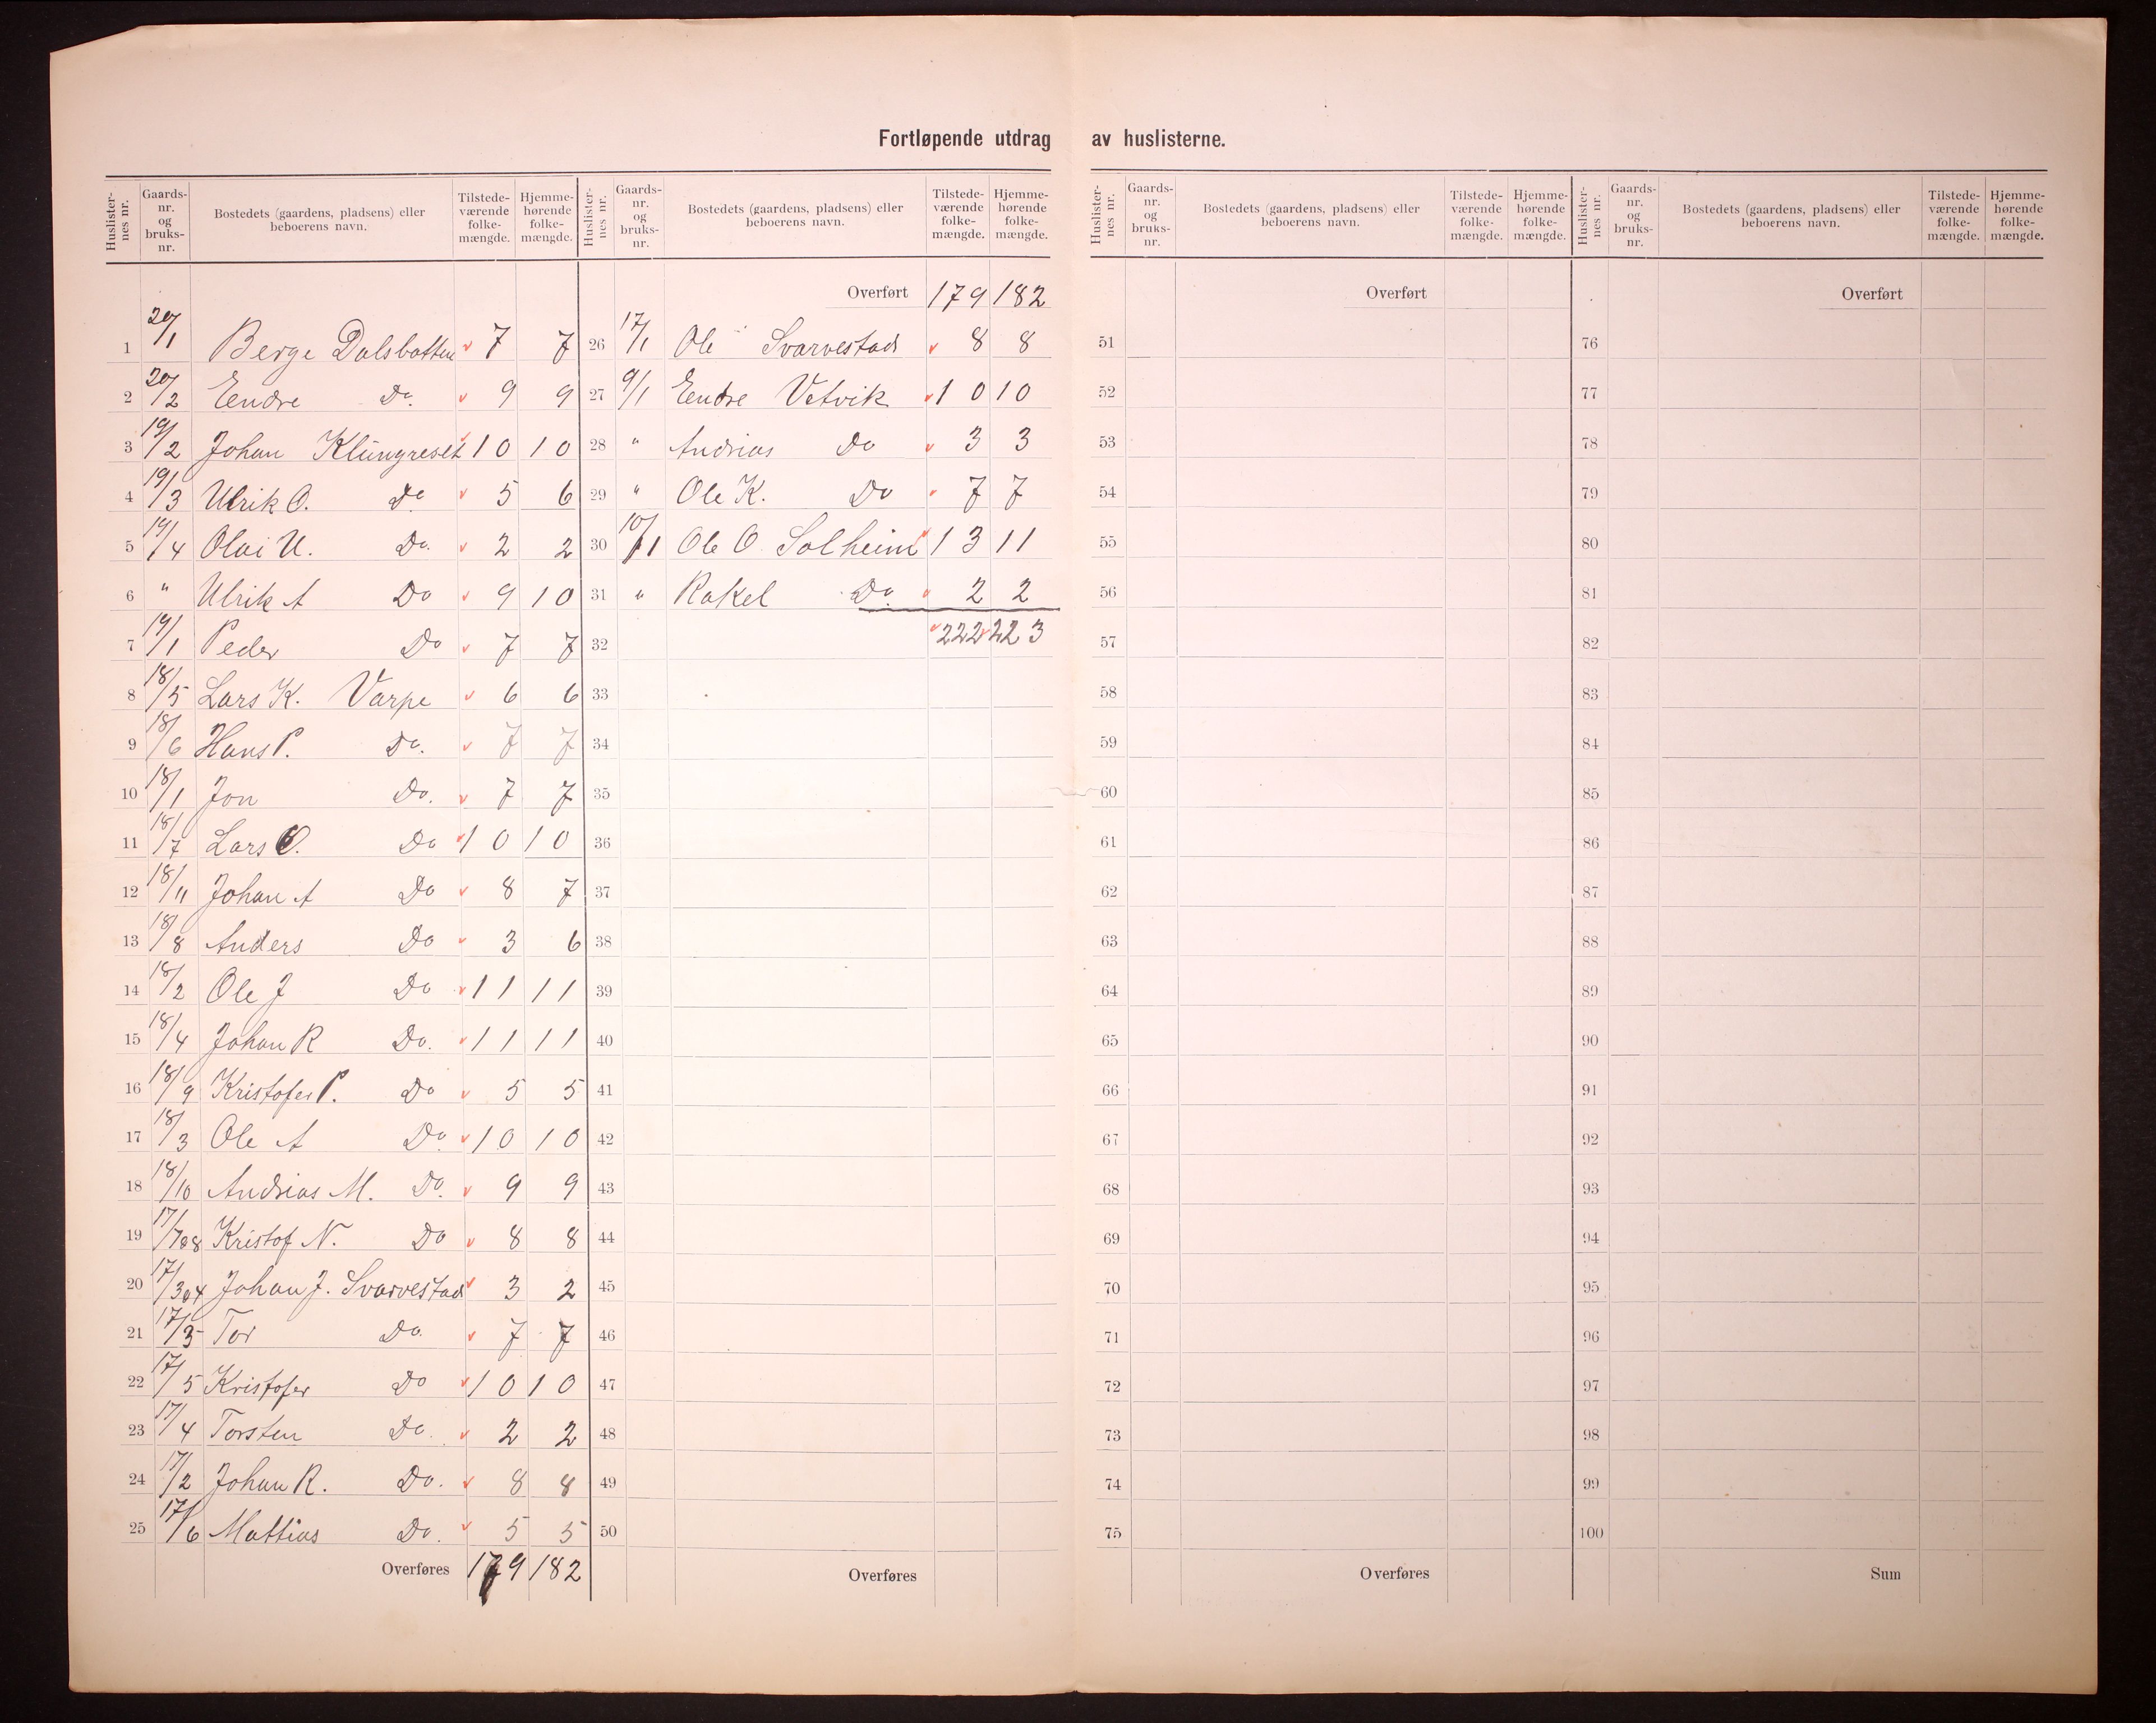 Fortløpende utdrag av huslisterne.
Huslister-nes nr. Gaards-nr. og bruks-nr. Bostedets (gaardens, pladsens) eller beboerens navn. Tilstede-værende folke-mængde. Hjemme-hørende folke-mængde.
1 20/1 Berge Dalsbotten 7 7
2 20/2 Endre Do. 9 9
3 19/2 Johan Klüngreset 10 10
4 19/3 Ulrik O. Do 5 6
5 19/4 Olai U. Do. 2 2
6 " Ulrik A Do 9 10
7 19/1 Peder Do 7 7
8 18/5 Lars K. Varpe 6 6
9 18/6 Hans P. Do. 7 7
10 18/1 Jon Do. 7 7
11 18/7 Lars O. Do 10 10
12 18/11 Johan A Do 8 7
13 18/8 Anders Do 3 6
14 18/2 Ole J Do 11 11
15 18/4 Johan R Do. 11 11
16 18/9 Kristofer P. Do 5 5
17 18/3 Ole A Do. 10 10
18 18/10 Andrias M. Do. 9 9
19 17/7o8 Kristof N. Do 8 8
20 17/3o4 Johan J. Svarvestad 3 2
21 17/3 Tor Do. 7 7
22 17/5 Kristofer Do 10 10
23 17/4 Torsten Do. 2 2
24 17/2 Johan R. Do. 8 8
25 17/6 Mattias Do. 5 5
Overføres 179 182
Huslister-nes nr. Gaards-nr. og bruks-nr. Bostedets (gaardens, pladsens) eller beboerens navn. Tilstede-værende folke-mængde. Hjemme-hørende folke-mængde.
Overført 179 182
26 17/1 Ole Svarvestad 8 8
27 9/1 Endre Vetvik 10 10
28 " Andrias Do 3 3
29 " Ole K. Do 7 7
30 10/1 Ole O. Solheim 13 11
31 " Rakel Do. 2 2
32 222 223
33
34
35
36
37
38
39
40
41
42
43
44
45
46
47
48
49
50
Overføres
Huslister-nes nr. Gaards-nr. og bruks-nr. Bostedets (gaardens, pladsens) eller beboerens navn. Tilstede-værende folke-mængde. Hjemme-hørende folke-mængde.
Overført
51
52
53
54
55
56
57
58
59
60
61
62
63
64
65
66
67
68
69
70
71
72
73
74
75
Overføres
Huslister-nes nr. Gaards-nr. og bruks-nr. Bostedets (gaardens, pladsens) eller beboerens navn. Tilstede-værende folke-mængde. Hjemme-hørende folke-mængde.
Overført
76
77
78
79
80
81
82
83
84
85
86
87
88
89
90
91
92
93
94
95
96
97
98
99
100
Sum